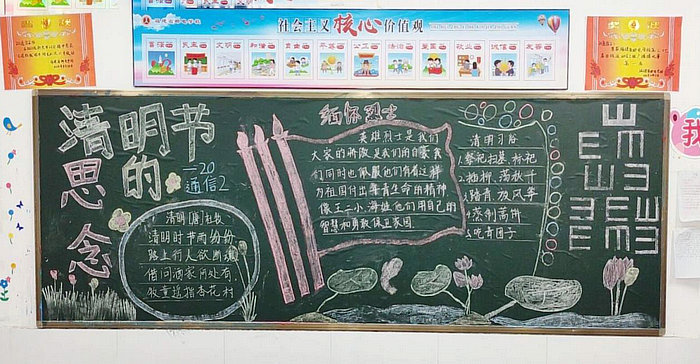 社会主义核心价值观
富强 民主 文明 和谐 自由 平等 公正 法治 爱国 敬业 诚信 友善
清明节
思念的
—20
通信2
清明[唐]杜牧
清明时节雨纷纷
路上行人欲断魂
借问酒家何处有
牧童遥指杏花村
缅怀烈士
英雄烈士是我们
大家的骄傲是我们的自豪
们同时也佩服他们有着这样
为祖国付出宝贵生命的精神
像王二小、海娃他们用自己的
智慧和勇敢保卫家园
清明习俗
1.祭祀扫墓、标祀
2.插柳、荡秋千
3.踏青、放风筝
4.
5.吃青团子
我